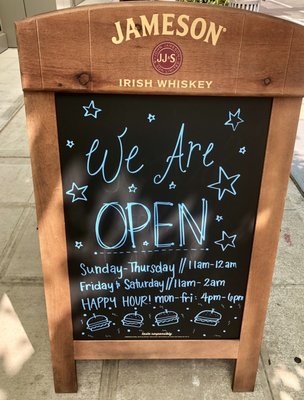 JAMESON
JJ&S
IRISH WHISKEY
We Are
OPEN
Sunday-Thursday // 11am-12am
Friday & Saturday // 11am-2am
HAPPY HOUR! mon-fri: 4pm-6pm
taste responsibly.